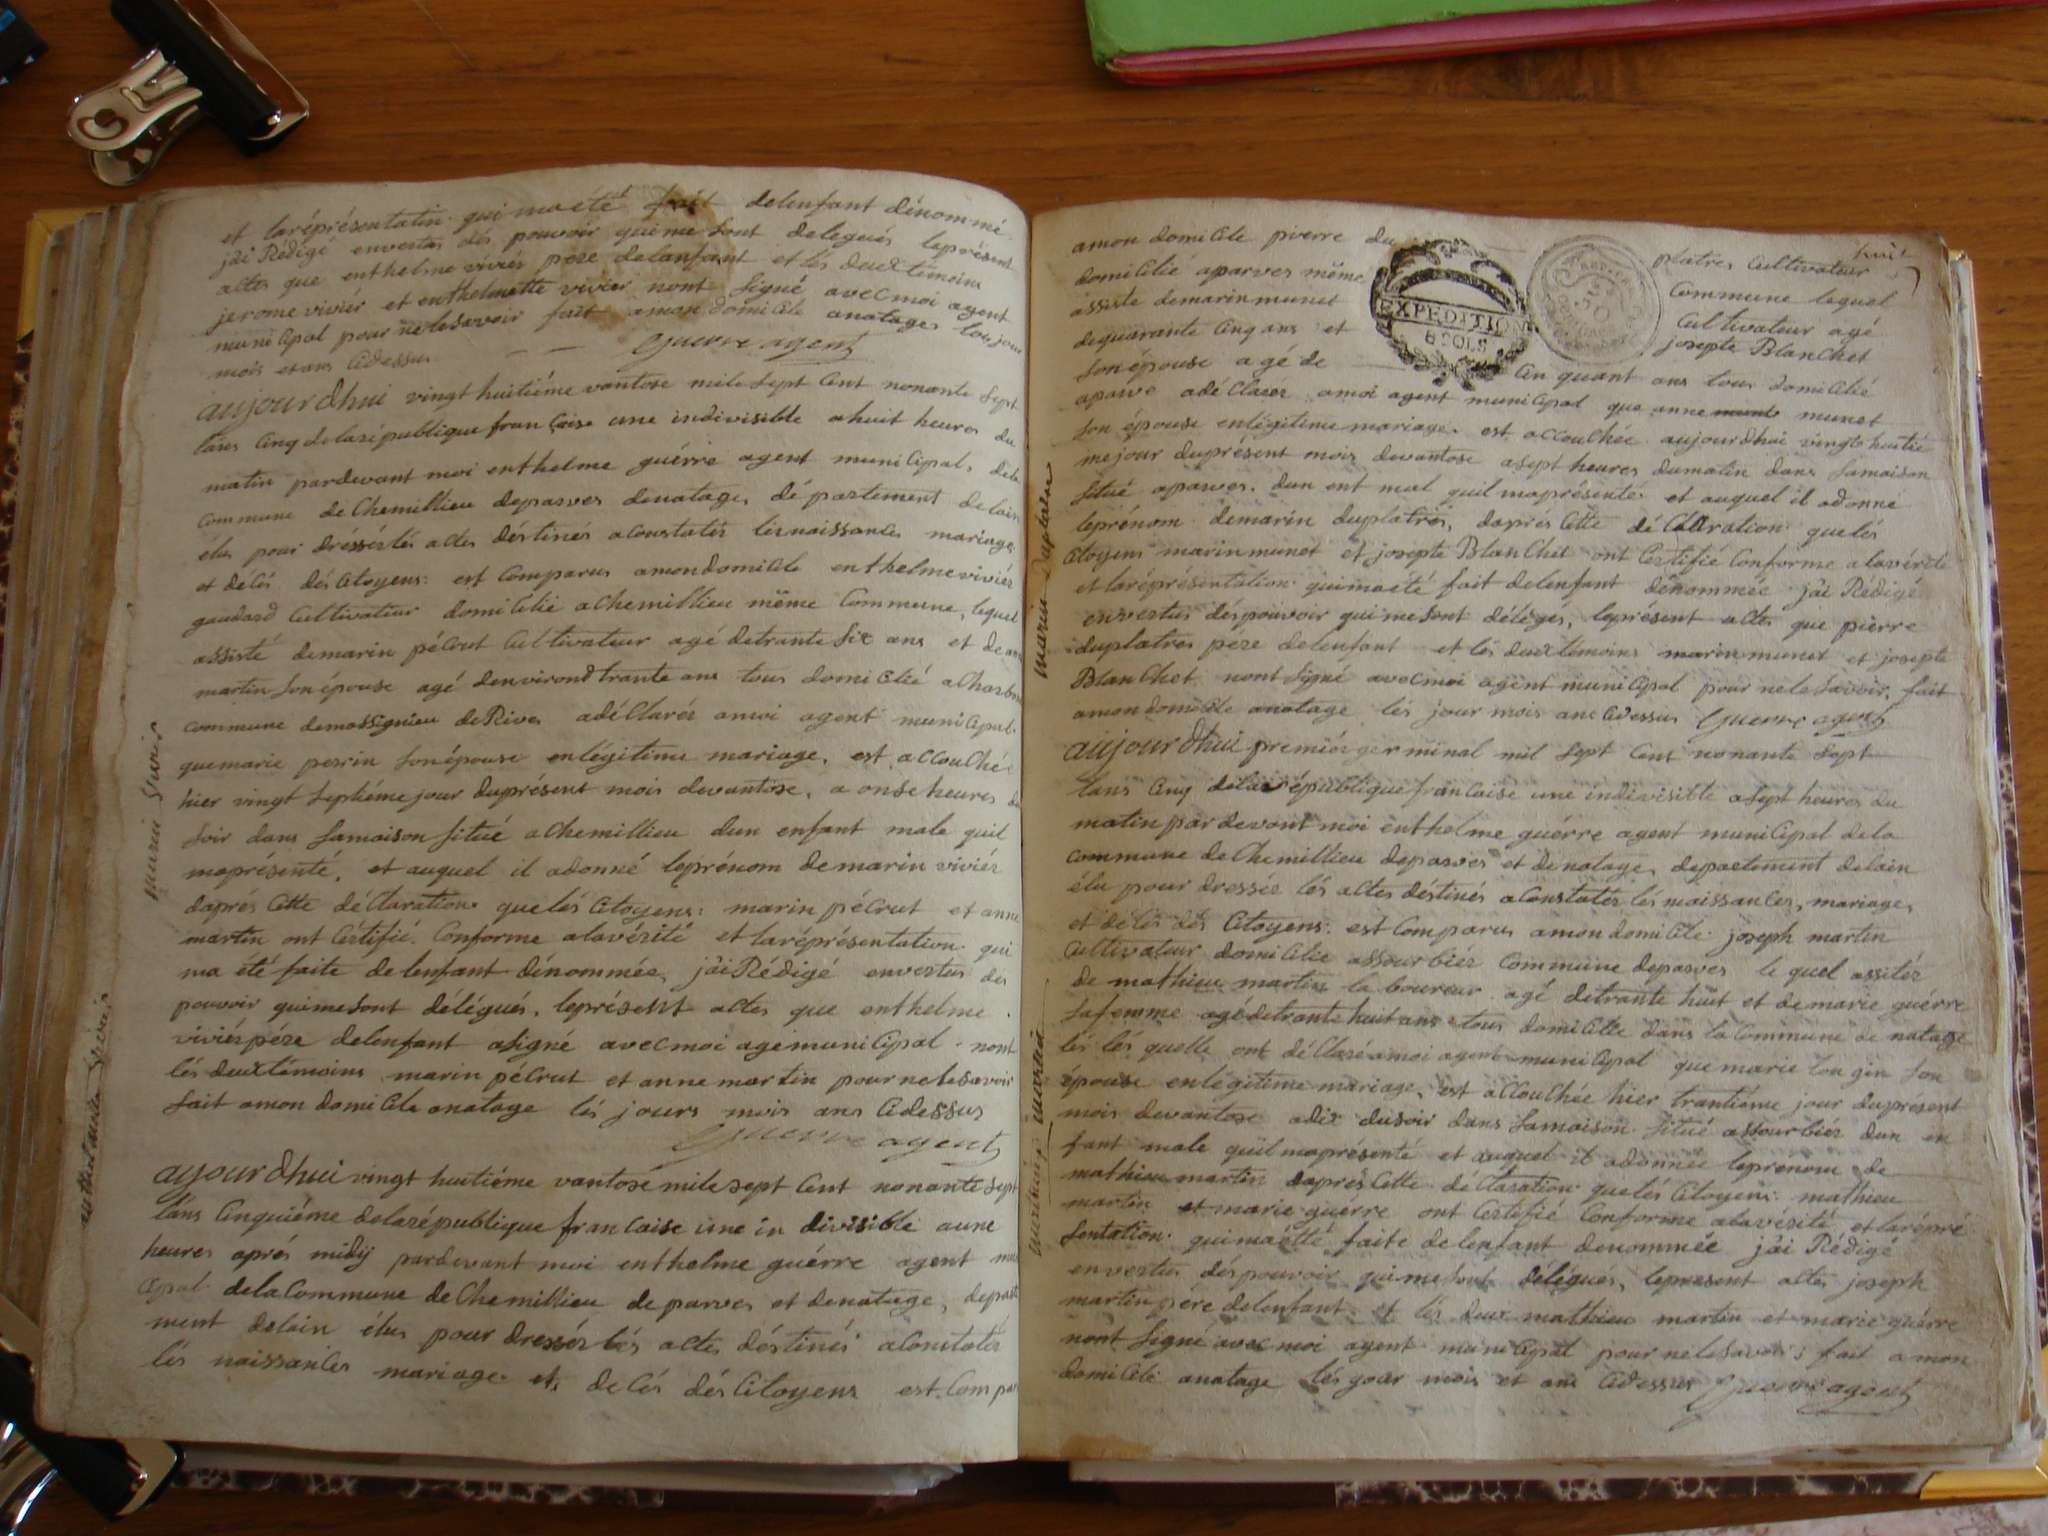 et laréprésentatin qui ma été fait delenfant dénommé
jai Rédigé envertus dés pouvoir quime sont delegués leprésent
actes que enthelme viviér pere delanfant et lés deuxtémoins
jerome viviér et enthelmette vivier nont signé avecmoi agent
municipal pour nelesavoir fait amondomicile anatages lesjour
mois etans Cidessus
Guerre agent
aujourdhui vingt huitiéme vantose mile sept Cent nonante sept
lans Cinq delarépublique francaise une indivisible ahuit heures du
matin pardevant moi enthelme guérre agent municipal, dela
commune de Chemillieu deparves denatages département delain
élus pour dréssérlés actes déstinés aConstatés lésnaissances mariages
et décés dés Citoyens: est Comparus amondomicile enthelmeviviér
gaudard Cultivateur domicilié achemillieu même Commune, lequel
assisté demarin pécrut Cultivateur agé detrante six ans et de anne
martin sonépouse agé denvirond trante ans tous domicilié
commune demassignieu de Rives adéClarés amoi agent municipal
quemarie perrin sonépouse enlégitime mariage, est accouchée
hier vingt septiémejour duprésent mois devantose, a onseheures du
soir dans samaison situé achemillieu dun enfant male quil
maprésenté, et auquel il adonné leprénom demarin viviér
daprés Cette déClaration quelés Citoyens: marin pécrut et anne
martin ont Cértifié Conforme alavérité et laréprésentation qui
ma été faite delenfant dénommée, jai Rédigé envertus des
pouvoir quimesont délégués, leprésent actes que enthelme
viviérpére delenfant asigné avecmoi agemunicipal nont
lés deuxtémoins marin pécrut et anne martin pournelesavoir
fait amondomicile anatage lés jours mois ans Cidessus
Guerre agent
aujourdhui vingt huitiéme vantose mile sept Cent nonante sept
lans Cinquiéme delarépublique francaise une indivisible aune
heures aprés midij pardevant moi enthelme guérre agent muni
Cipal delaCommune deChemillieu deparves et denatage, départe
ment delain élus pour dressérlés actes déstinés aConstatés
lés naissances mariages et décés dés Citoyens est Compar
marin
amon domicile pierre du platres Cultivateur
huit
domicilié aparves même Commune lequel
assiste demarinmunet Cultivateur agé
dequarante Cinq ans et josepte BlanChet
son épouse agé de Cin quant ans tous domicilié
EXPEDITION
8 SOLS
aparve adéClarés amoi agent municipal que anne munet
son épouse enlégitimemariage, est accouchée aujourdhui vingt huitié
mejour duprésent mois devantose asept heures dumatin dans samaison
situé aparves, dun ent mal quil maprésenté et auquel il adonné
leprénom demarin duplatrés, daprés Cette déClaration quelés
Citoyens marinmunet et josepte BlanChet ont Cértifié Conforme alavérité
et laréprésentation quimaété fait delenfant dénommée jai Rédigé
envertus déspouvoir quimesont délégés, leprésent actes que pierre
duplatres pére delenfant et lés deuxtémoins marinmunet et josepte
BlanChet nont signé avecmoi agent municipal pour nele savoir, fait
amondomicile anatage lés jour mois ans Cidessus Guerre agent
marin Duplatre
aujourdhui premiér germinal mil sept Cent nonante sept
lans Cinq delarépublique francaise une indivisible asept heures du
matin pardevant moi enthelme guérre agent municipal dela
commune deChemillieu deparves et denatage, departement delain
élu pour dressée lés actes déstinés aConstatér lés naissances, mariage,
et décés dés Citoyens. est Comparus amondomicile joseph martin
Cultivateur domicilie assourbiér Commune deparves le quel assités
de mathieu martin laboureur agé detrante huit et demarie guérre
safemme agédetrante huit ans tous domicilie dans laCommune de natage
lés quelle ont déClaréamoi agent municipal que marie son
épouse enlégitimemariage, est accouchée hier trantiéme jour duprésent
mois devantose adix dusoir dans samaison situé assourbiér dun en
fant male quil maprésenté et auquel il adonnée leprenom de
mathieu martin daprés Cette déClaration quelés Citoyens mathieu
martin et marie guérre ont Certifié Conforme alavérité et larépré
sentation quimaétté faite delenfant denommée jai Rédigé
envertus déspouvoir quimesont délégués, lepresent actes joseph
martin pére delenfant et lés deux mathieu martin et marie guérre
nont signé avec moi agent municipal pour nelesavoir, fait amon
domicile anatage lés jour mois et ans Cidessus Guerre agent